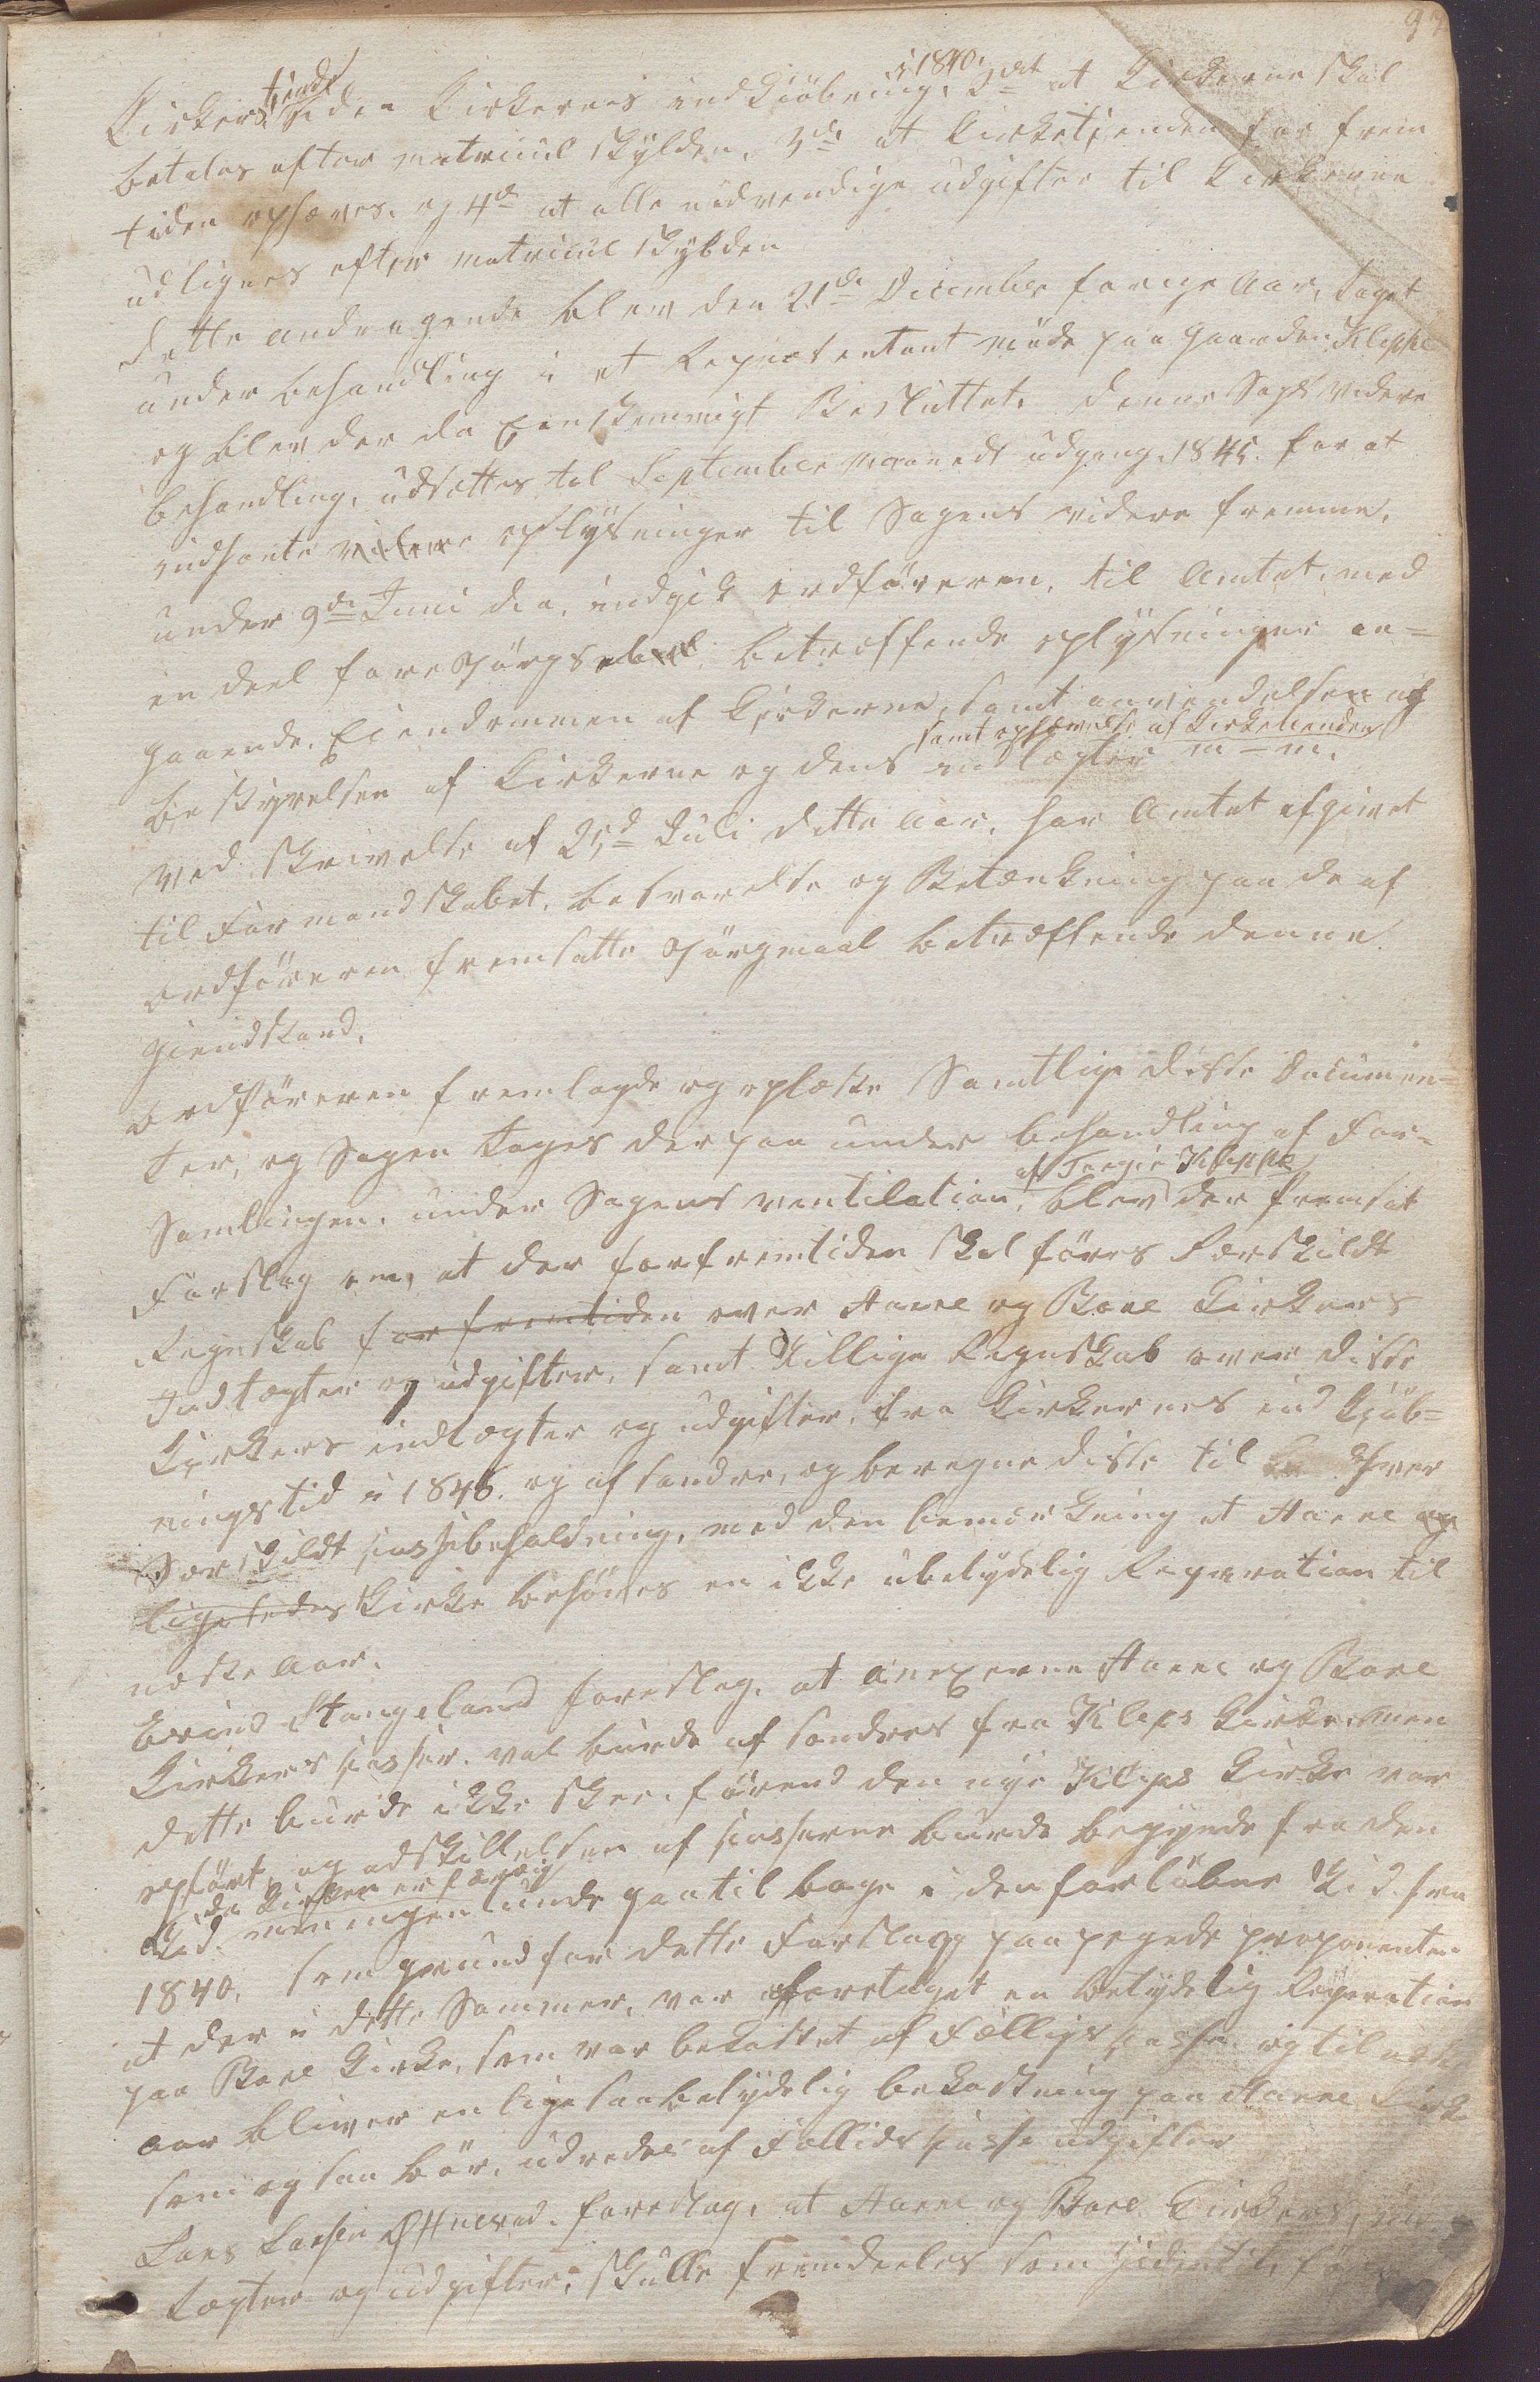 97
Kirkers tiende siden Kirkernes indkiöbning i 1840. 2det at Kirkerne skal
betales efter matricul skylden. 3de at Kirketienden for frem
tiden ophæves. og 4de at alle nødvendige udgifter til Kirkerne
udlignes efter matricul skylden
dette andragende blev den 21de December forige Aar, taget
under behandling i et Repræsentant möde paa gaarden Kleppe
og blev der da Eenstemmigt Besluttet. denne Sags videre
behandling, udsættes til September maaneds udgang 1845. for at
indhente videre oplysninger til Sagens videre fremme.
under 9de Juni d.a. indgik ordföreren, til Amtet, med
en deel forespörgsel betræffende oplysninger an=
gaaende Eiendommen af Kirkerne, samt anvendelsen af
bestyrelsen af Kirkerne og dens indtægter m=m.
samt ophævelse af Kirketienden
ved skrivelse af 25d Juli dette Aar, har Amtet afgivet
til Formandskabet, besvarelse og Betænkning paa de af
ordföreren fremsatte spörgmaal betræffende denne
gienstand.
Ordföreren fremlagde og oplæste Samtlige disse Documen=
ter, og Sagen toges derpaa under behandling af For=
samlingen. under Sagens ventilation, af Torgir Kleppe blev der fremsat
Forslag om, at der for fremtiden skal föres særskildt
Regnskab for fremtiden over Haave og Bore Kirkers
Indtægter og udgifter, samt tillige Regnskab over disse
Kirkers indtægter og udgifter, fra Kirkernes ind kjöb=
nings tid i 1840. og afsondre, og beregne disse til hver
Sær skildt cassebeholdning, med den bemærkning at Haave og
ligeledes Kirke behöves en ikke ubetydelig Reparation til
næste Aar.
Eivind Stangeland foreslog, at anexerne Haave og Bore
Kirkers casser, vel burde af sondres fra Kleps Kirke, men
dette burde ikke skee, förend den nye Kleps Kirke var
opfört, og adskillelsen af casserne burde begynde fra den
Tid, da Kirken er færdig men ingenlunde gaa til bage i den forlöbne Tid fra
1840. som grund for dette Forslag paapegede proponenten
at der i dette Sommer, var foretaget en betydelig Reparation
paa Bore Kirke, som var bekostet af Fælligs casse og til næste
Aar bliver en ligesaa betydelig bekostning paa Haave Kirke
som ogsaa bör, udredes af Fællids casse udgifter
Lars Larsen foreslog, at Haave og Bore Kirkers, ind
tægter og udgifter, skulle fremdeeles som